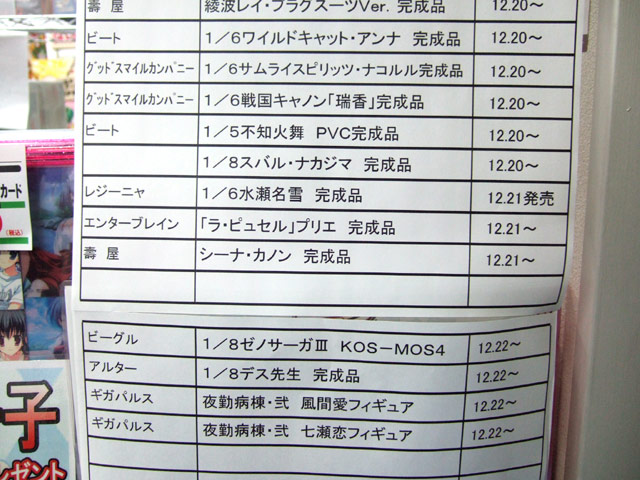 壽屋 綾波レイ・プラグスーツVer. 完成品 12.20～
ビート 1／6ワイルドキャット・アンナ 完成品 12.20～
グッドスマイルカンパニー 1／6サムライスピリッツ・ナコルル完成品 12.20～
グッドスマイルカンパニー 1／6戦国キャノン「瑞香」完成品 12.20～
ビート 1／5不知火舞 PVC完成品 12.20～
1／8スバル・ナカジマ 完成品 12.20～
レジーニャ 1／6水瀬名雪 完成品 12.21発売
エンターブレイン 「ラ・ピュセル」プリエ 完成品 12.21～
壽屋 シーナ・カノン 完成品 12.21～
ビーグル 1／8ゼノサーガⅢ KOS－MOS4 12.22～
アルター 1／8デス先生 完成品 12.22～
ギガパルス 夜勤病棟・弐 風間愛フィギュア 12.22～
ギガパルス 夜勤病棟・弐 七瀬恋フィギュア 12.22～
カード
(税込)
子
ゼント